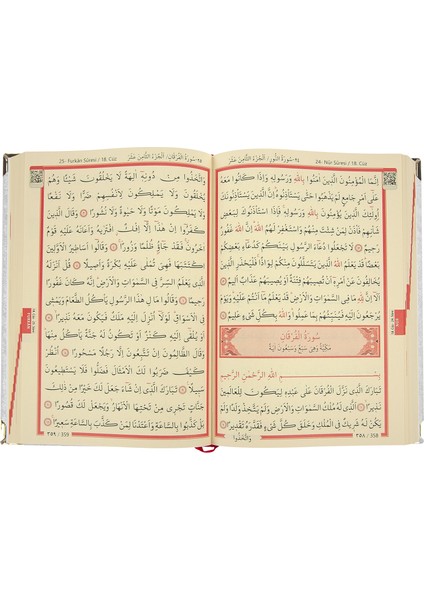 ٢٤-سُورَةُ النُّورِ / اَلْجُزْءُ الثَّامِنَ عَشَرَ 24. Nûr Sûresi / 18. Cüz
اِنَّمَا الْمُؤْمِنُونَ الَّذ۪ينَ اٰمَنُوا بِاللّٰهِ وَرَسُولِه۪ وَاِذَا كَانُوا مَعَهُ
عَلٰٓى اَمْرٍ جَامِعٍ لَمْ يَذْهَبُوا حَتّٰى يَسْتَأْذِنُوهُۜ اِنَّ الَّذ۪ينَ يَسْتَأْذِنُونَكَ
اُو۬لٰٓئِكَ الَّذ۪ينَ يُؤْمِنُونَ بِاللّٰهِ وَرَسُولِه۪ۚ فَاِذَا اسْتَأْذَنُوكَ لِبَعْضِ
شَأْنِهِمْ فَأْذَنْ لِمَنْ شِئْتَ مِنْهُمْ وَاسْتَغْفِرْ لَهُمُ اللّٰهَۜ اِنَّ اللّٰهَ غَفُورٌ
رَح۪يمٌ لَا تَجْعَلُوا دُعَٓاءَ الرَّسُولِ بَيْنَكُمْ كَدُعَٓاءِ بَعْضِكُمْ
بَعْضًاۜ قَدْ يَعْلَمُ اللّٰهُ الَّذ۪ينَ يَتَسَلَّلُونَ مِنْكُمْ لِوَاذًاۚ فَلْيَحْذَرِ الَّذ۪ينَ
يُخَالِفُونَ عَنْ اَمْرِه۪ٓ اَنْ تُص۪يبَهُمْ فِتْنَةٌ اَوْ يُص۪يبَهُمْ عَذَابٌ اَل۪يمٌ
اَلَٓا اِنَّ لِلّٰهِ مَا فِي السَّمٰوَاتِ وَالْاَرْضِۜ قَدْ يَعْلَمُ مَٓا اَنْتُمْ عَلَيْهِۜ وَيَوْمَ
يُرْجَعُونَ اِلَيْهِ فَيُنَبِّئُهُمْ بِمَا عَمِلُواۜ وَاللّٰهُ بِكُلِّ شَيْءٍ عَل۪يمٌ
سُورَةُ الْفُرْقَانِ
مَكِّيَّةٌ وَهِيَ سَبْعٌ وَسَبْعُونَ اٰيَةً
بِسْمِ اللّٰهِ الرَّحْمٰنِ الرَّح۪يمِ
تَبَارَكَ الَّذ۪ي نَزَّلَ الْفُرْقَانَ عَلٰى عَبْدِه۪ لِيَكُونَ لِلْعَالَم۪ينَ
نَذ۪يرًا اَلَّذ۪ي لَهُ مُلْكُ السَّمٰوَاتِ وَالْاَرْضِ وَلَمْ يَتَّخِذْ وَلَدًا وَلَمْ
يَكُنْ لَهُ شَر۪يكٌ فِي الْمُلْكِ وَخَلَقَ كُلَّ شَيْءٍ فَقَدَّرَهُ تَقْد۪يرًا
٣٥٨ / 358
وَاتَّخَذُوا
25. Furkân Sûresi / 18. Cüz ٢٥-سُورَةُ الْفُرْقَانِ / اَلْجُزْءُ الثَّامِنَ عَشَرَ
وَاتَّخَذُوا مِنْ دُونِه۪ٓ اٰلِهَةً لَا يَخْلُقُونَ شَيْـًٔا وَهُمْ
يُخْلَقُونَ وَلَا يَمْلِكُونَ لِاَنْفُسِهِمْ ضَرًّا وَلَا نَفْعًا
وَلَا يَمْلِكُونَ مَوْتًا وَلَا حَيٰوةً وَلَا نُشُورًا وَقَالَ الَّذ۪ينَ
كَفَرُٓوا اِنْ هٰذَٓا اِلَّٓا اِفْكٌۨ افْتَرٰيهُ وَاَعَانَهُ عَلَيْهِ قَوْمٌ
اٰخَرُونَۚ فَقَدْ جَٓاؤُ۫ ظُلْمًا وَزُورًا وَقَالُٓوا اَسَاط۪يرُ الْاَوَّل۪ينَ
اكْتَتَبَهَا فَهِيَ تُمْلٰى عَلَيْهِ بُكْرَةً وَاَص۪يلًا قُلْ اَنْزَلَهُ
الَّذ۪ي يَعْلَمُ السِّرَّ فِي السَّمٰوَاتِ وَالْاَرْضِۜ اِنَّهُ كَانَ غَفُورًا
رَح۪يمًا وَقَالُوا مَالِ هٰذَا الرَّسُولِ يَأْكُلُ الطَّعَامَ وَيَمْش۪ي
فِي الْاَسْوَاقِۜ لَوْلَٓا اُنْزِلَ اِلَيْهِ مَلَكٌ فَيَكُونَ مَعَهُ نَذ۪يرًا
اَوْ يُلْقٰٓى اِلَيْهِ كَنْزٌ اَوْ تَكُونُ لَهُ جَنَّةٌ يَأْكُلُ مِنْهَاۜ
وَقَالَ الظَّالِمُونَ اِنْ تَتَّبِعُونَ اِلَّا رَجُلًا مَسْحُورًا اُنْظُرْ
كَيْفَ ضَرَبُوا لَكَ الْاَمْثَالَ فَضَلُّوا فَلَا يَسْتَط۪يعُونَ
سَب۪يلًا تَبَارَكَ الَّذ۪ٓي اِنْ شَٓاءَ جَعَلَ لَكَ خَيْرًا مِنْ ذٰلِكَ
جَنَّاتٍ تَجْر۪ي مِنْ تَحْتِهَا الْاَنْهَارُۙ وَيَجْعَلْ لَكَ قُصُورًا
بَلْ كَذَّبُوا بِالسَّاعَةِ وَاَعْتَدْنَا لِمَنْ كَذَّبَ بِالسَّاعَةِ سَع۪يرًا
٣٥٩ / 359